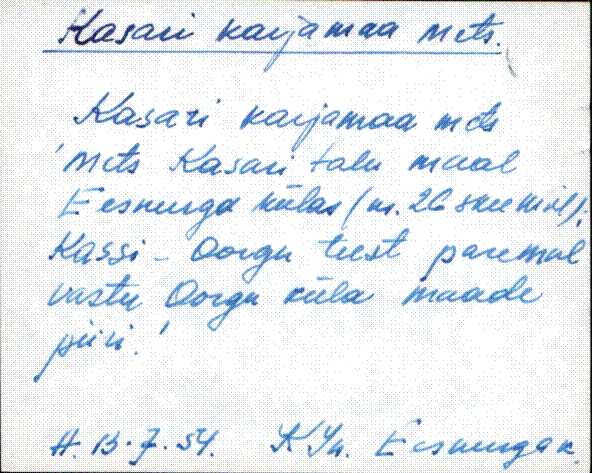 Kasari karjamaa mets.
Kasari karjamaa mets
'mets Kasari talu maal
Eesnurga külas (nr. 26 skeemil);
Kassi - Oorgu teest paremal
vastu Oorgu küla maade
piiri.'
H. 13.7.54. KJn. Eesnurga k.